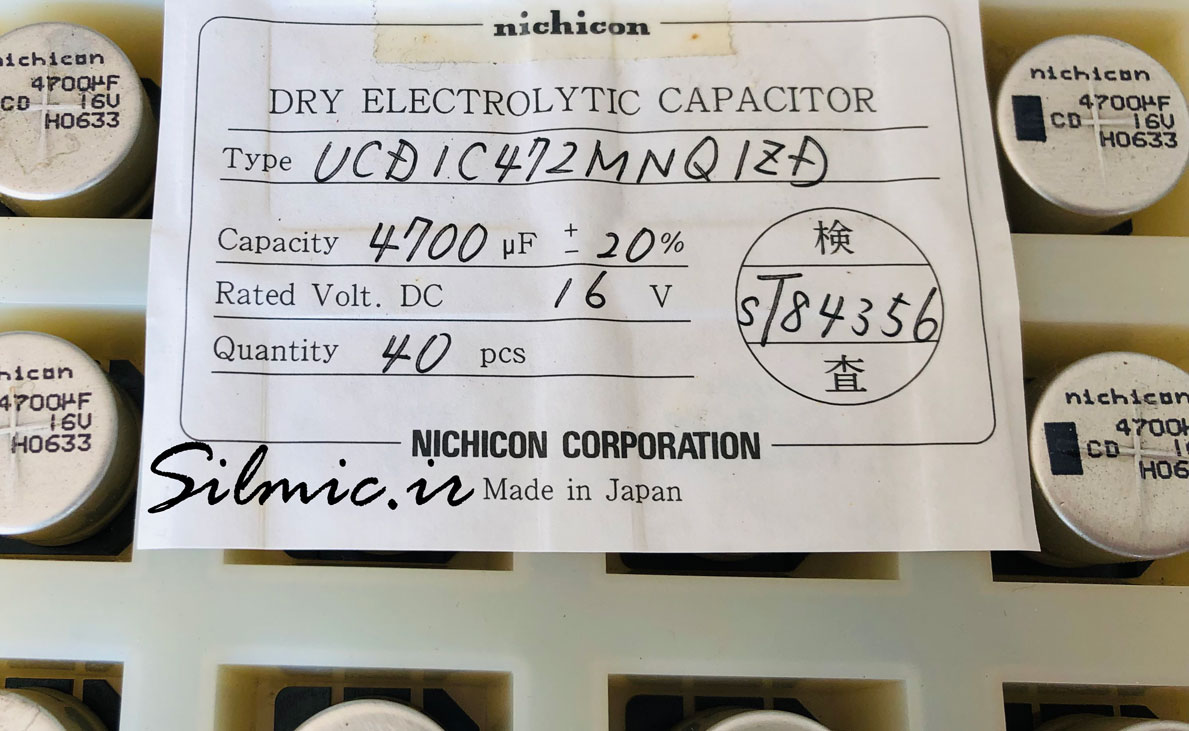 nichicon
DRY ELECTROLYTIC CAPACITOR
Type UCD1C472MNQ1ZD
Capacity 4700 µF ± 20%
Rated Volt. DC 16 V
Quantity 40 pcs
検
ST84356
査
NICHICON CORPORATION
Made in Japan
Silmic.ir
nichicon
4700µF
CD 16V
H0633
nichicon
4700µF
CD 16V
H0633
nicon
4700µF
16V
H0633
nichicon
470
CD
H06